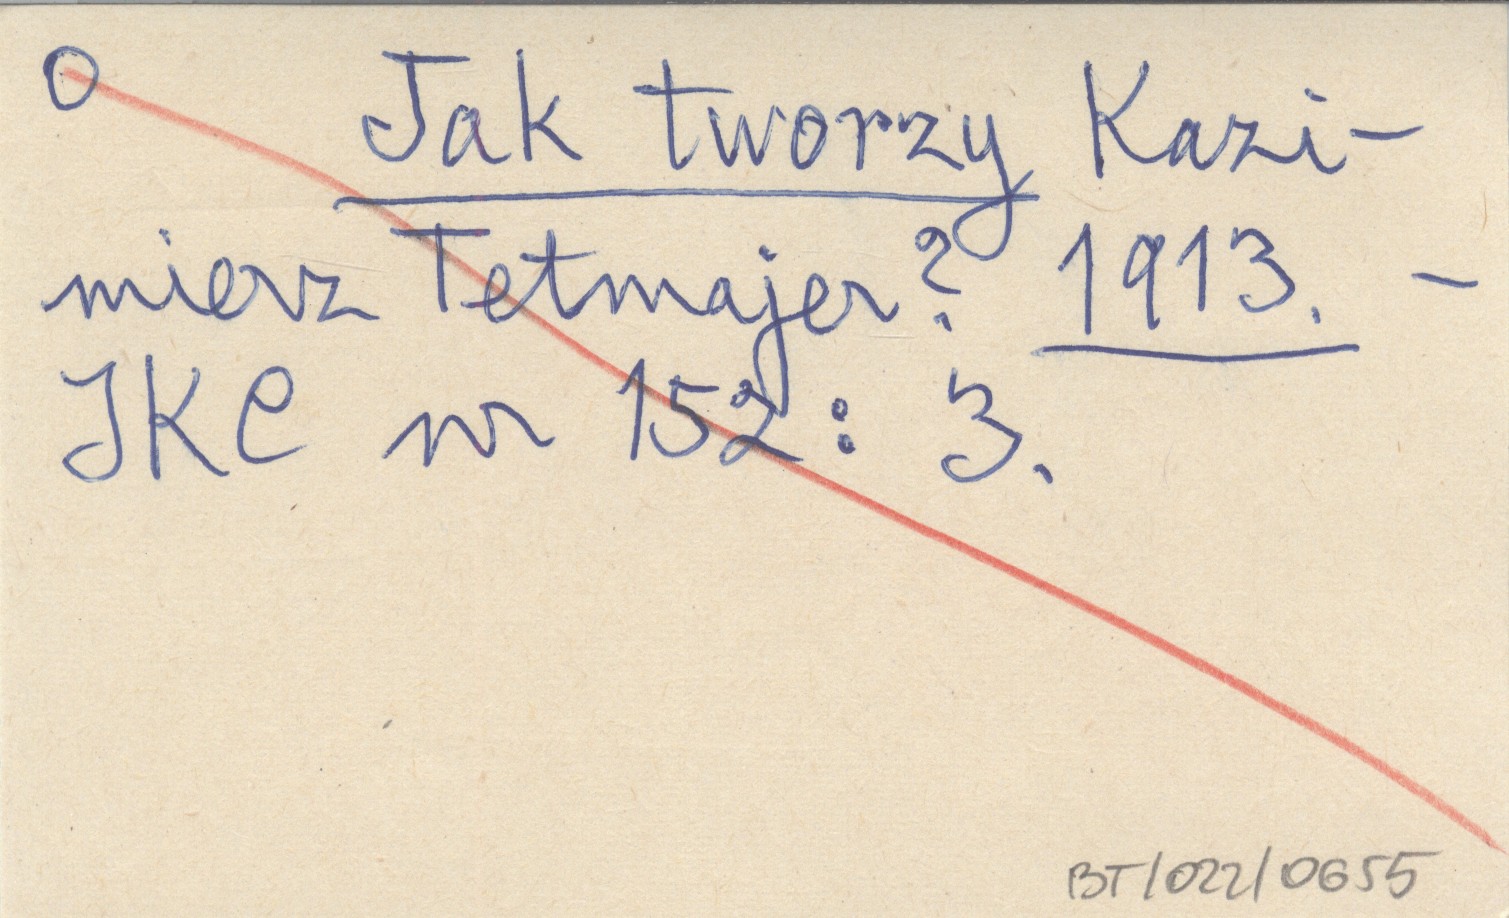 O Jak tworzy Kazi-
mierz Tetmajer? 1913. -
JKC nr 152: 3.
BT/022/0655